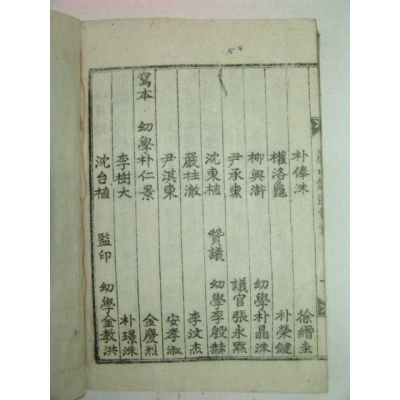 朴俸洙 徐縉圭
權洛龜 朴榮鍵
柳興㵧 幼學朴晶洙
尹承熏 議官張永㸃
沈東植 贊議 幼學李殷赫
嚴柱澈 李汶杰
尹淇東 安孝淑
寫本 幼學朴仁景 金慶烈
李樹大 朴璟洙
沈台植 監印 幼學金敎洪